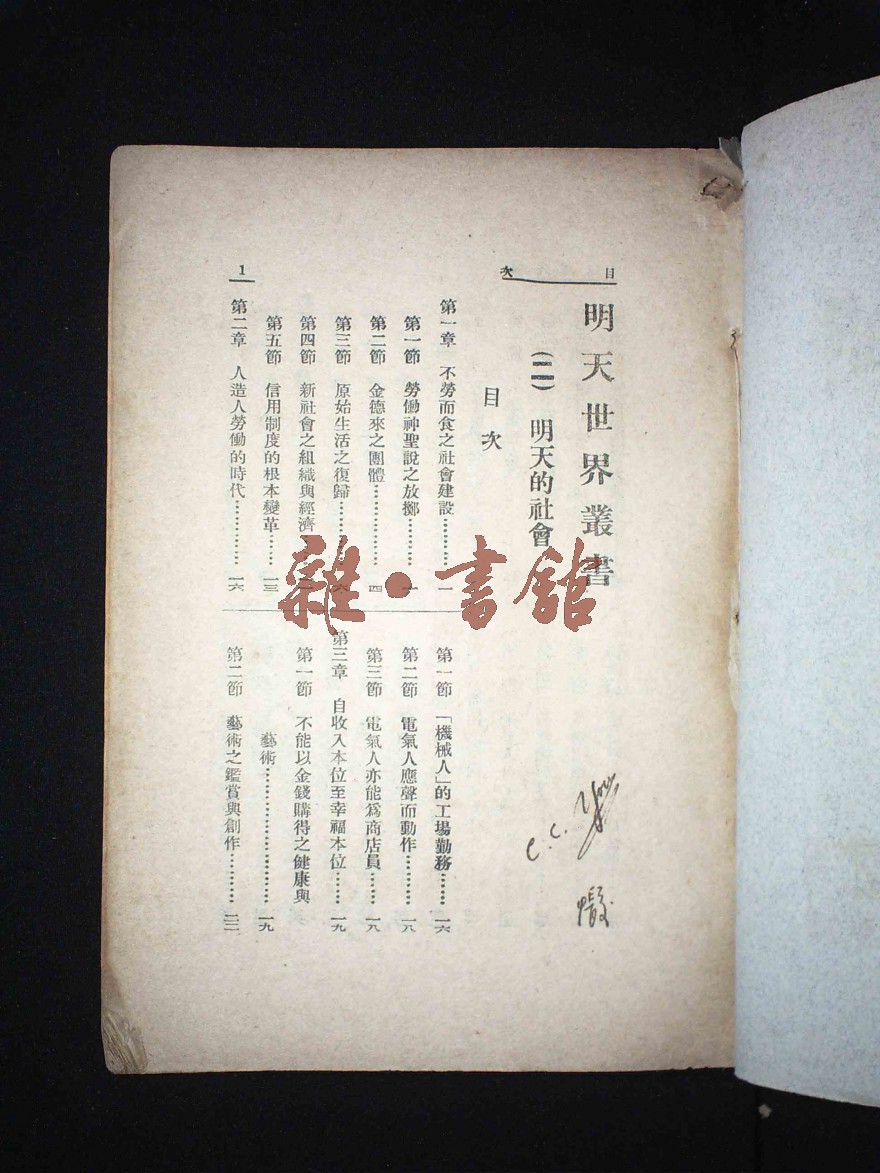 目次
明天世界叢書
(二) 明天的社會
目次
第一章 不勞而食之社會建設………一
第一節 勞働神聖說之放擲………一
第二節 金德來之團體…………四
第三節 原始生活之復歸………六
第四節 新社會之組織與經濟
第五節 信用制度的根本變革……一三
第二章 人造人勞働的時代…………一六
第一節 「機械人」的工場勤務……一六
第二節 電氣人應聲而動作………一八
第三節 電氣人亦能爲商店員……一八
第三章 自收入本位至幸福本位……一九
第一節 不能以金錢購得之健康與
藝術………………………一九
第二節 藝術之鑑賞與創作………二二
1
C. C.
雜·書館